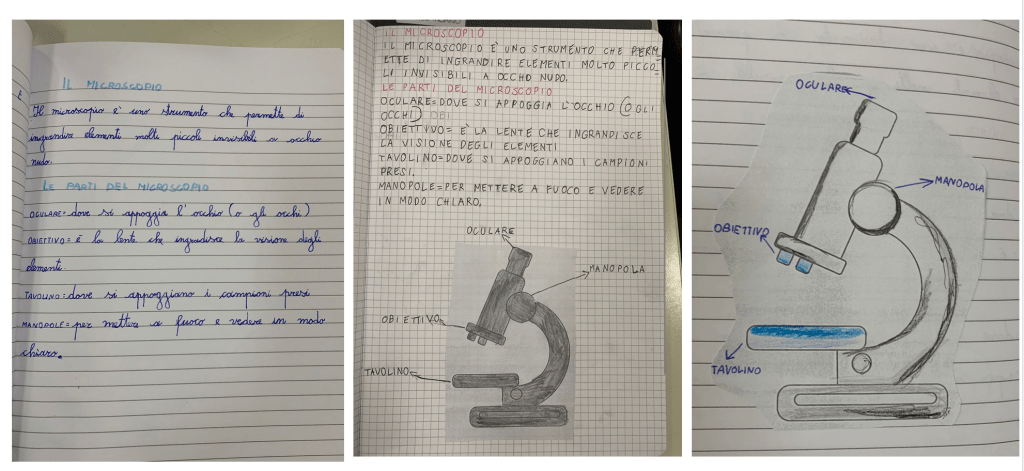 IL MICROSCOPIO
Il microscopio è uno strumento che permette di
ingrandire elementi molto piccoli invisibili a occhio
nudo.
LE PARTI DEL MICROSCOPIO
OCULARE= dove si appoggia l'occhio (o gli occhi)
OBIETTIVO= è la lente che ingrandisce la visione degli
elementi
TAVOLINO= dove si appoggiano i campioni presi
MANOPOLE= per mettere a fuoco e vedere in modo
chiaro.
IL MICROSCOPIO
IL MICROSCOPIO È UNO STRUMENTO CHE PERM
ETTE DI INGRANDIRE ELEMENTI MOLTO PICCO
LI INVISIBILI A OCCHO NUDO.
LE PARTI DEL MICROSCOPIO
OCULARE= DOVE SI APPOGGIA L'OCCHIO (O GLI
OCCHI)
OBIETTIVO= È LA LENTE CHE INGRANDISCE
LA VISIONE DEGLI ELEMENTI
TAVOLINO= DOVE SI APPOGGIANO I CAMPIONI
PRESI.
MANOPOLE= PER METTERE A FUOCO E VEDERE
IN MODO CHIARO.
OCULARE
MANOPOLA
OBIETTIVO
TAVOLINO
OCULARE
MANOPOLA
OBIETTIVO
TAVOLINO